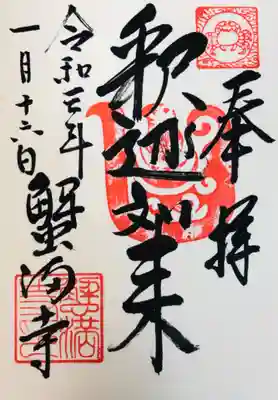 奉拝
釈迦如来
令和三年
一月十六日
蟹満寺